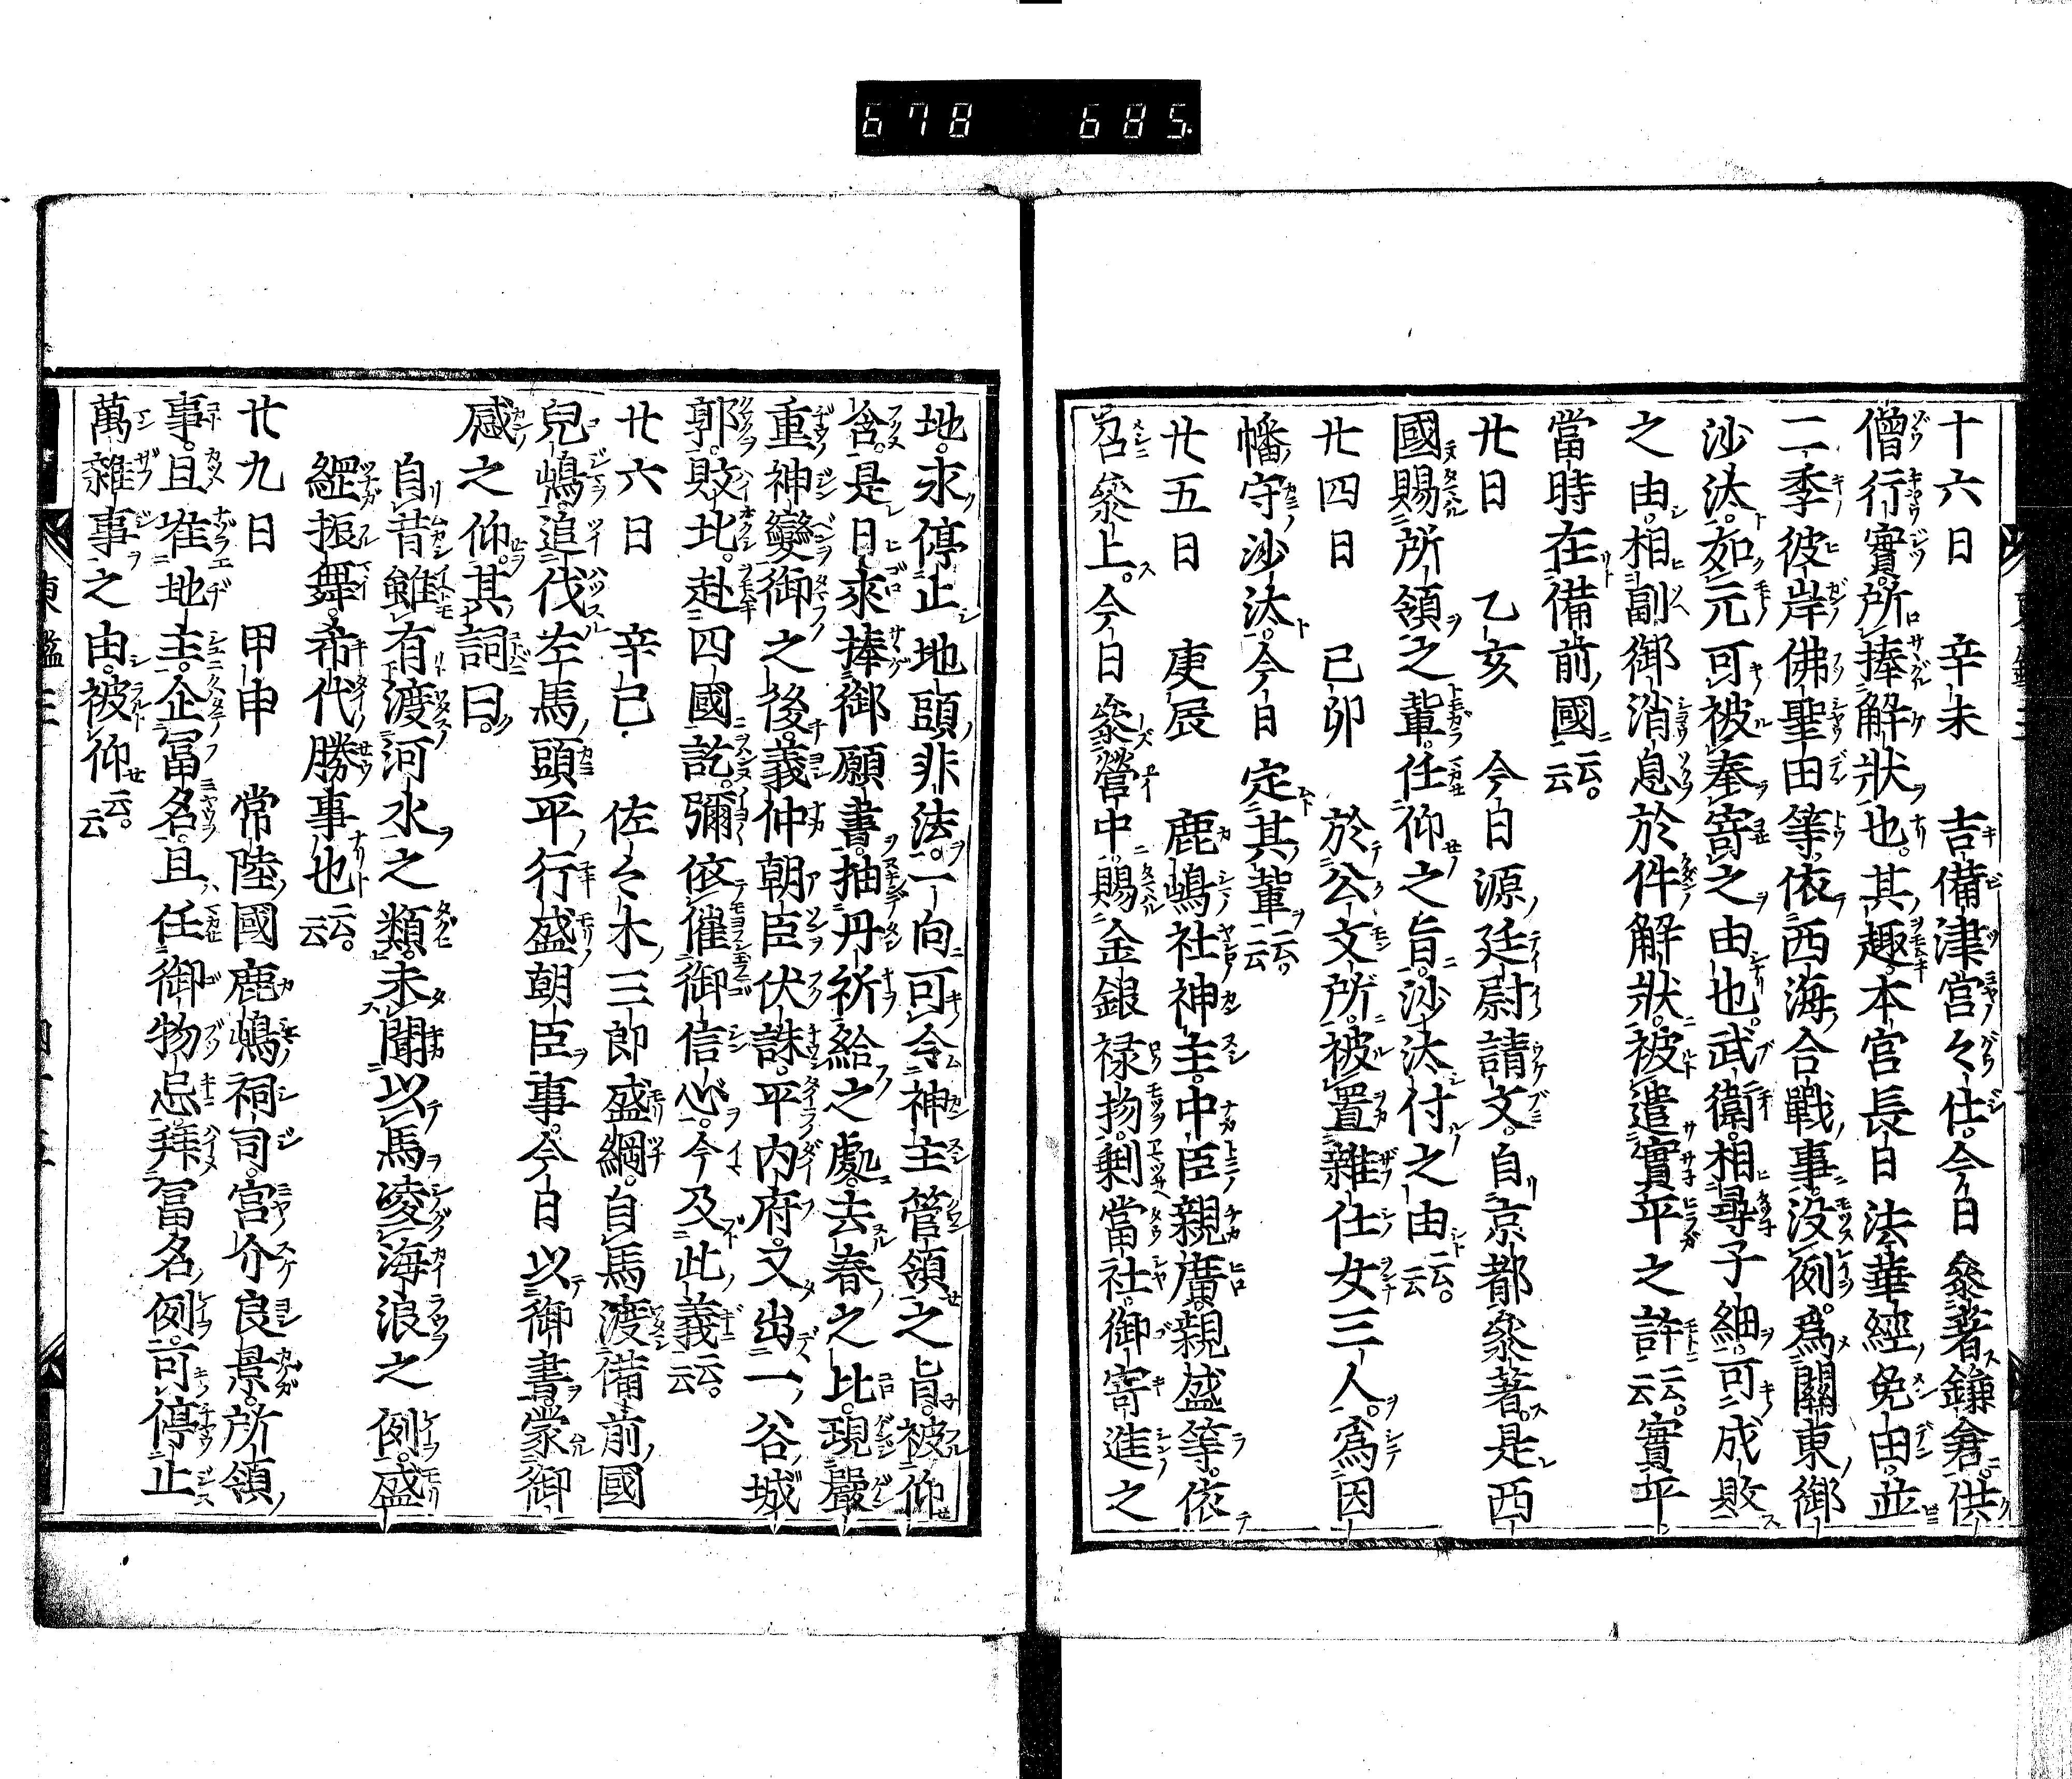 678 685.
十六日 辛未 吉備津宮々仕。今日參著鎌倉。供
僧行實。所捧解狀也。其趣。本宮長日法華經免田。並
二季彼岸佛聖田等。依西海合戰事。沒例。爲關東御
沙汰。如元可被奉寄之由也。武衛。相尋子細。可成敗
之由。相副御消息於件解狀。被遣實平之許云云。實平
當時在備前國云云。
廿日 乙亥 今日源廷尉請文。自京都參著。是西
國賜所領之輩。任仰之旨。沙汰付之由云云。
廿四日 己卯 於公文所。被置雜仕女三人。爲因
幡守沙汰。今日定其輩云云。
廿五日 庚辰 鹿嶋社神主。中臣親廣。親盛等。依
召參上。今日參營中賜金銀祿物。剩當社。御寄進之
地。永停止地頭非法。一向可令神主管領之旨。被仰
含。是日來捧御願書。抽丹祈給之處。去春之比。現嚴
重神變御之後。義仲朝臣伏誅。平内府。又出一谷城
郭。敗北。赴四國訖。彌依催御信心。今及此義云云。
廿六日 辛巳 佐々木三郎盛綱。自馬渡備前國
兒嶋。追伐左馬頭平行盛朝臣事。今日以御書。蒙御
感之仰。其詞曰。
自昔雖有渡河水之類。未聞以馬凌海浪之例。盛
綱振舞。希代勝事也云云。
廿九日 甲申 常陸國鹿嶋祠司。宮介良景。所領
事。且准地主。企冨名。且任御物忌拜冨名例。可停止
萬雜事之由。被仰云云